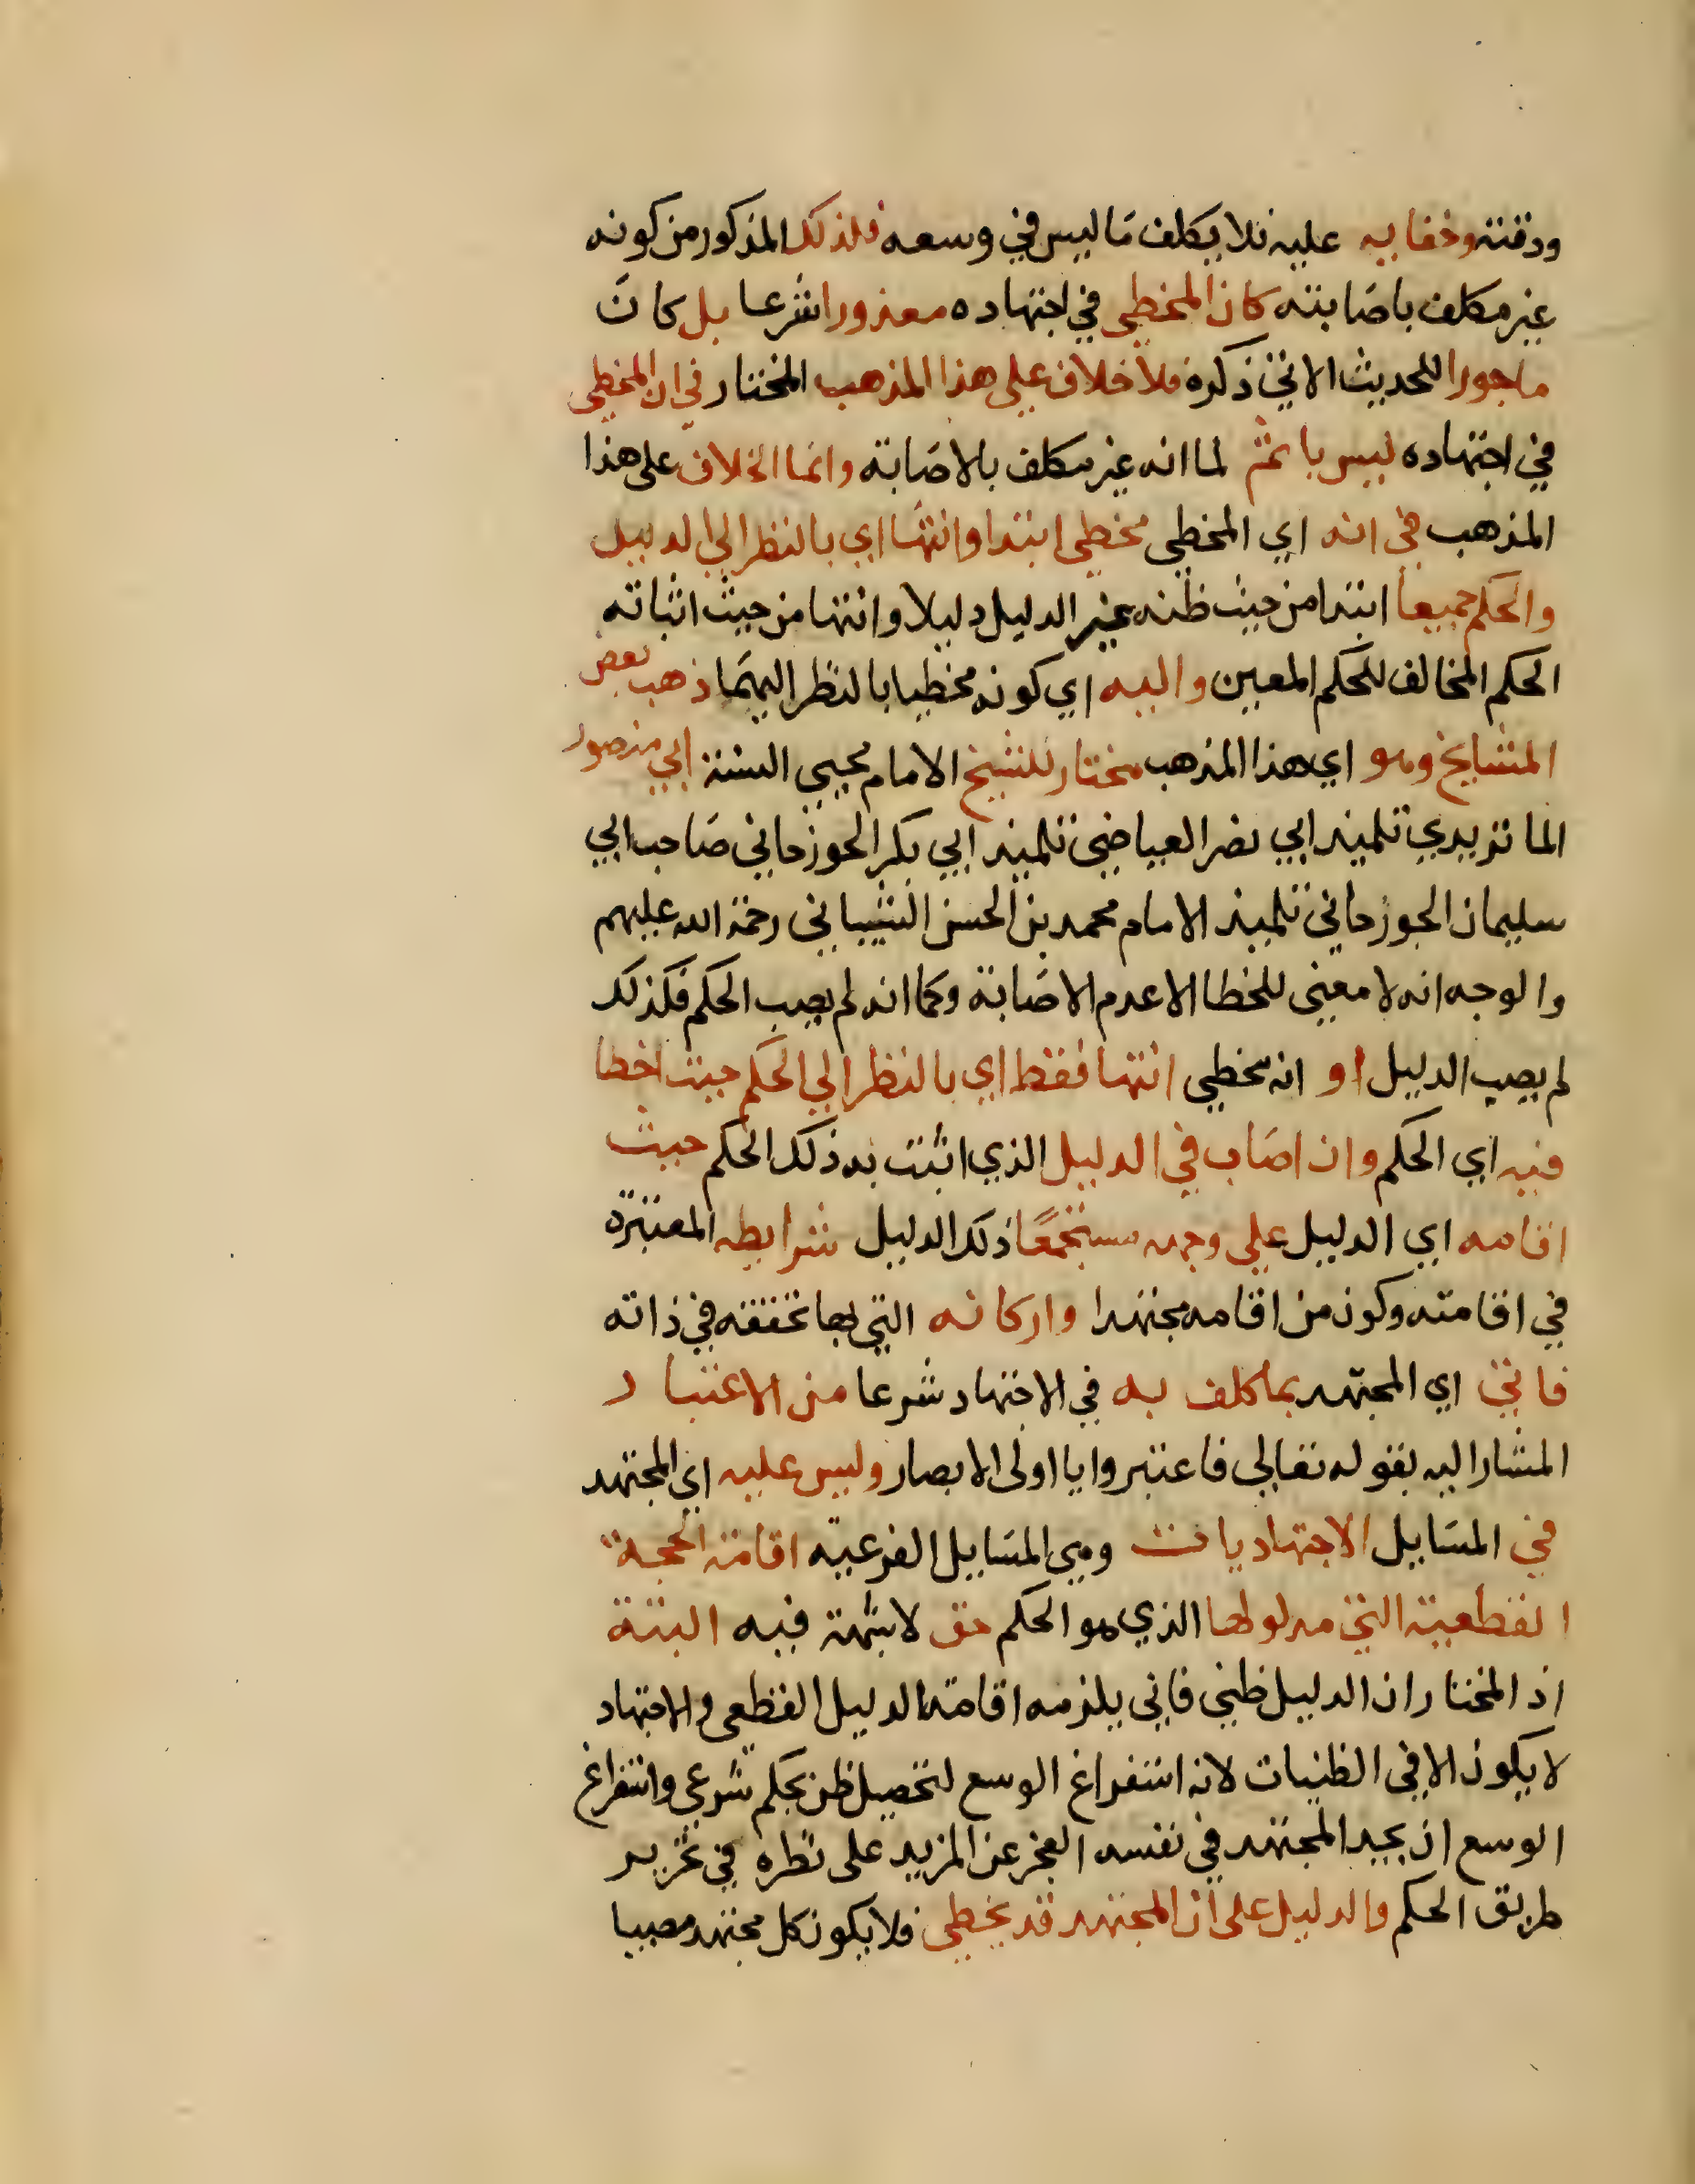 ودقته وخفايه عليه فلا يكلف ما ليس في وسعه فلذلك المذكور من كونه
غير مكلف باصابته كان المخطي في اجتهاده معذورا شرعا بل كان
ماجورا للحديث الاتي ذكره فلا خلاف علي هذا المذهب المختار في ان المخطي
في اجتهاده ليس باثم لما انه غير مكلف بالاصابة وانما الخلاف على هذا
المذهب في انه اي المخطي مخطي ابتدا وانتها اي بالنظر الي الدليل
والحكم جميعا ابتدا من حيث ظنه غير الدليل دليلا وانتها من حيث اثباته
الحكم المخالف للحكم المعين واليه اي كونه مخطيا بالنظر اليهما ذهب بعض
المشايخ وهو اي هذا المذهب مختار للشيخ الامام محيي السنة ابي منصور
الماتريدي تلميذ ابي نصر العياضي تلميذ ابي بكر الجوزجاني صاحب ابي
سليمان الجوزجاني تلميذ الامام محمد بن الحسن الشيباني رحمة الله عليهم
والوجه انه لا معني للخطا الا عدم الاصابة وكما انه لم يصب الحكم فكذلك
لم يصب الدليل او انه مخطي انتها فقط اي بالنظر الي الحكم حيث اخطا
فيه اي الحكم وان اصاب في الدليل الذي اثبت به ذلك الحكم حيث
اقامه اي الدليل علي وجهه مستجمعا ذلك الدليل شرايطه المعتبرة
في اقامته وكون من اقامه مجتهدا واركانه التي بها تحققه في ذاته
فاتي اي المجتهد بما كلف به في الاجتهاد شرعا من الاعتبار
المشار اليه بقوله تعالي فاعتبروا يا اولى الابصار وليس عليه اي المجتهد
في المسايل الاجتهاديات وهي المسايل الفرعية اقامة الحجة
القطعية التي مدلولها الذي هو الحكم حق لا شبهة فيه البتة
اذ المختار ان الدليل ظني فاني يلزمه اقامة الدليل القطعي والاجتهاد
لا يكون الا في الظنيات لانه استفراغ الوسع لتحصيل ظن بحكم شرعي واستفراغ
الوسع ان يجد المجتهد في نفسه العجز عن المزيد على نظره في تحرير
طريق الحكم والدليل على ان المجتهد قد يخطي فلا يكون كل مجتهد مصيبا